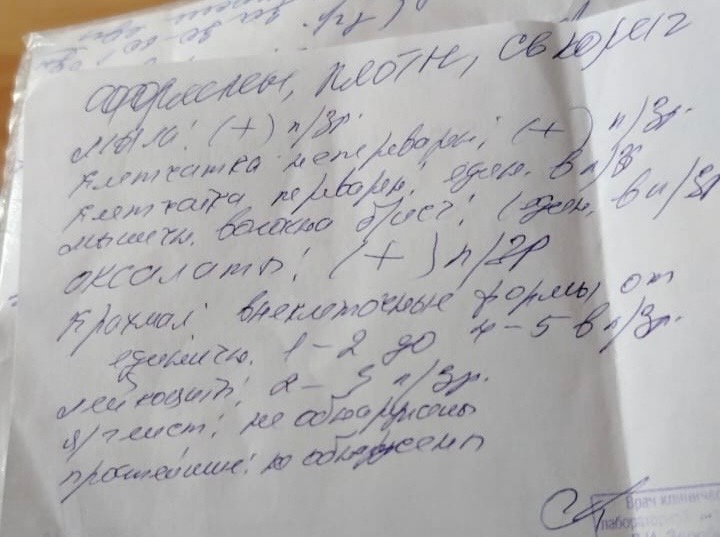 оформлены, плотн, св корич
мыла: (+) п/зр.
клетчатка неперевар: (+) п/зр.
клетчатка перевар: един. в п/з
мышечн. волокна б/исч: (един. в п/зр
оксалаты: (+) п/зр
крахмал внеклеточные формы от
единичн. 1-2 до 4-5 в п/зр.
лейкоциты: 2- п/зр.
я/глист: не обнаружены
простейшие: не обнаружены
Врач клинической
лаборатор